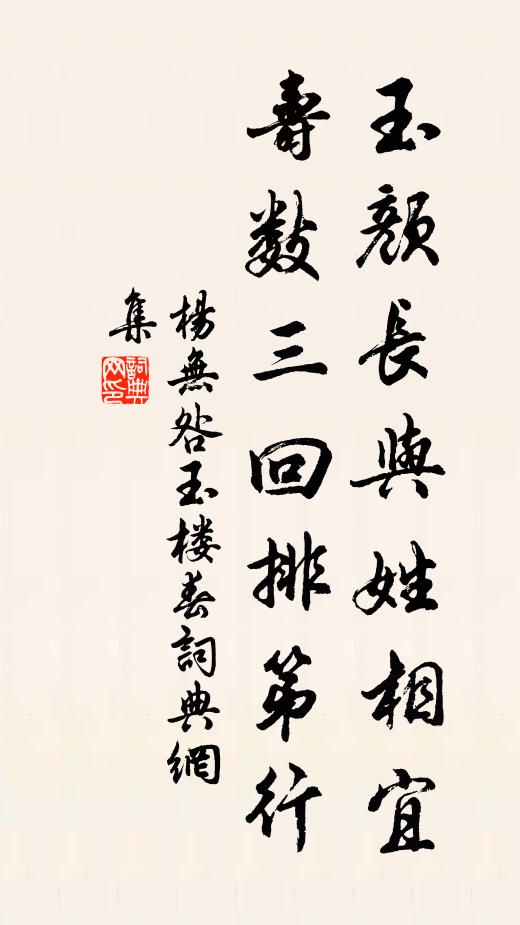 玉顔長與姓相宜
壽數三回排第行
楊無咎玉楼春詞典網
集
詞典网印